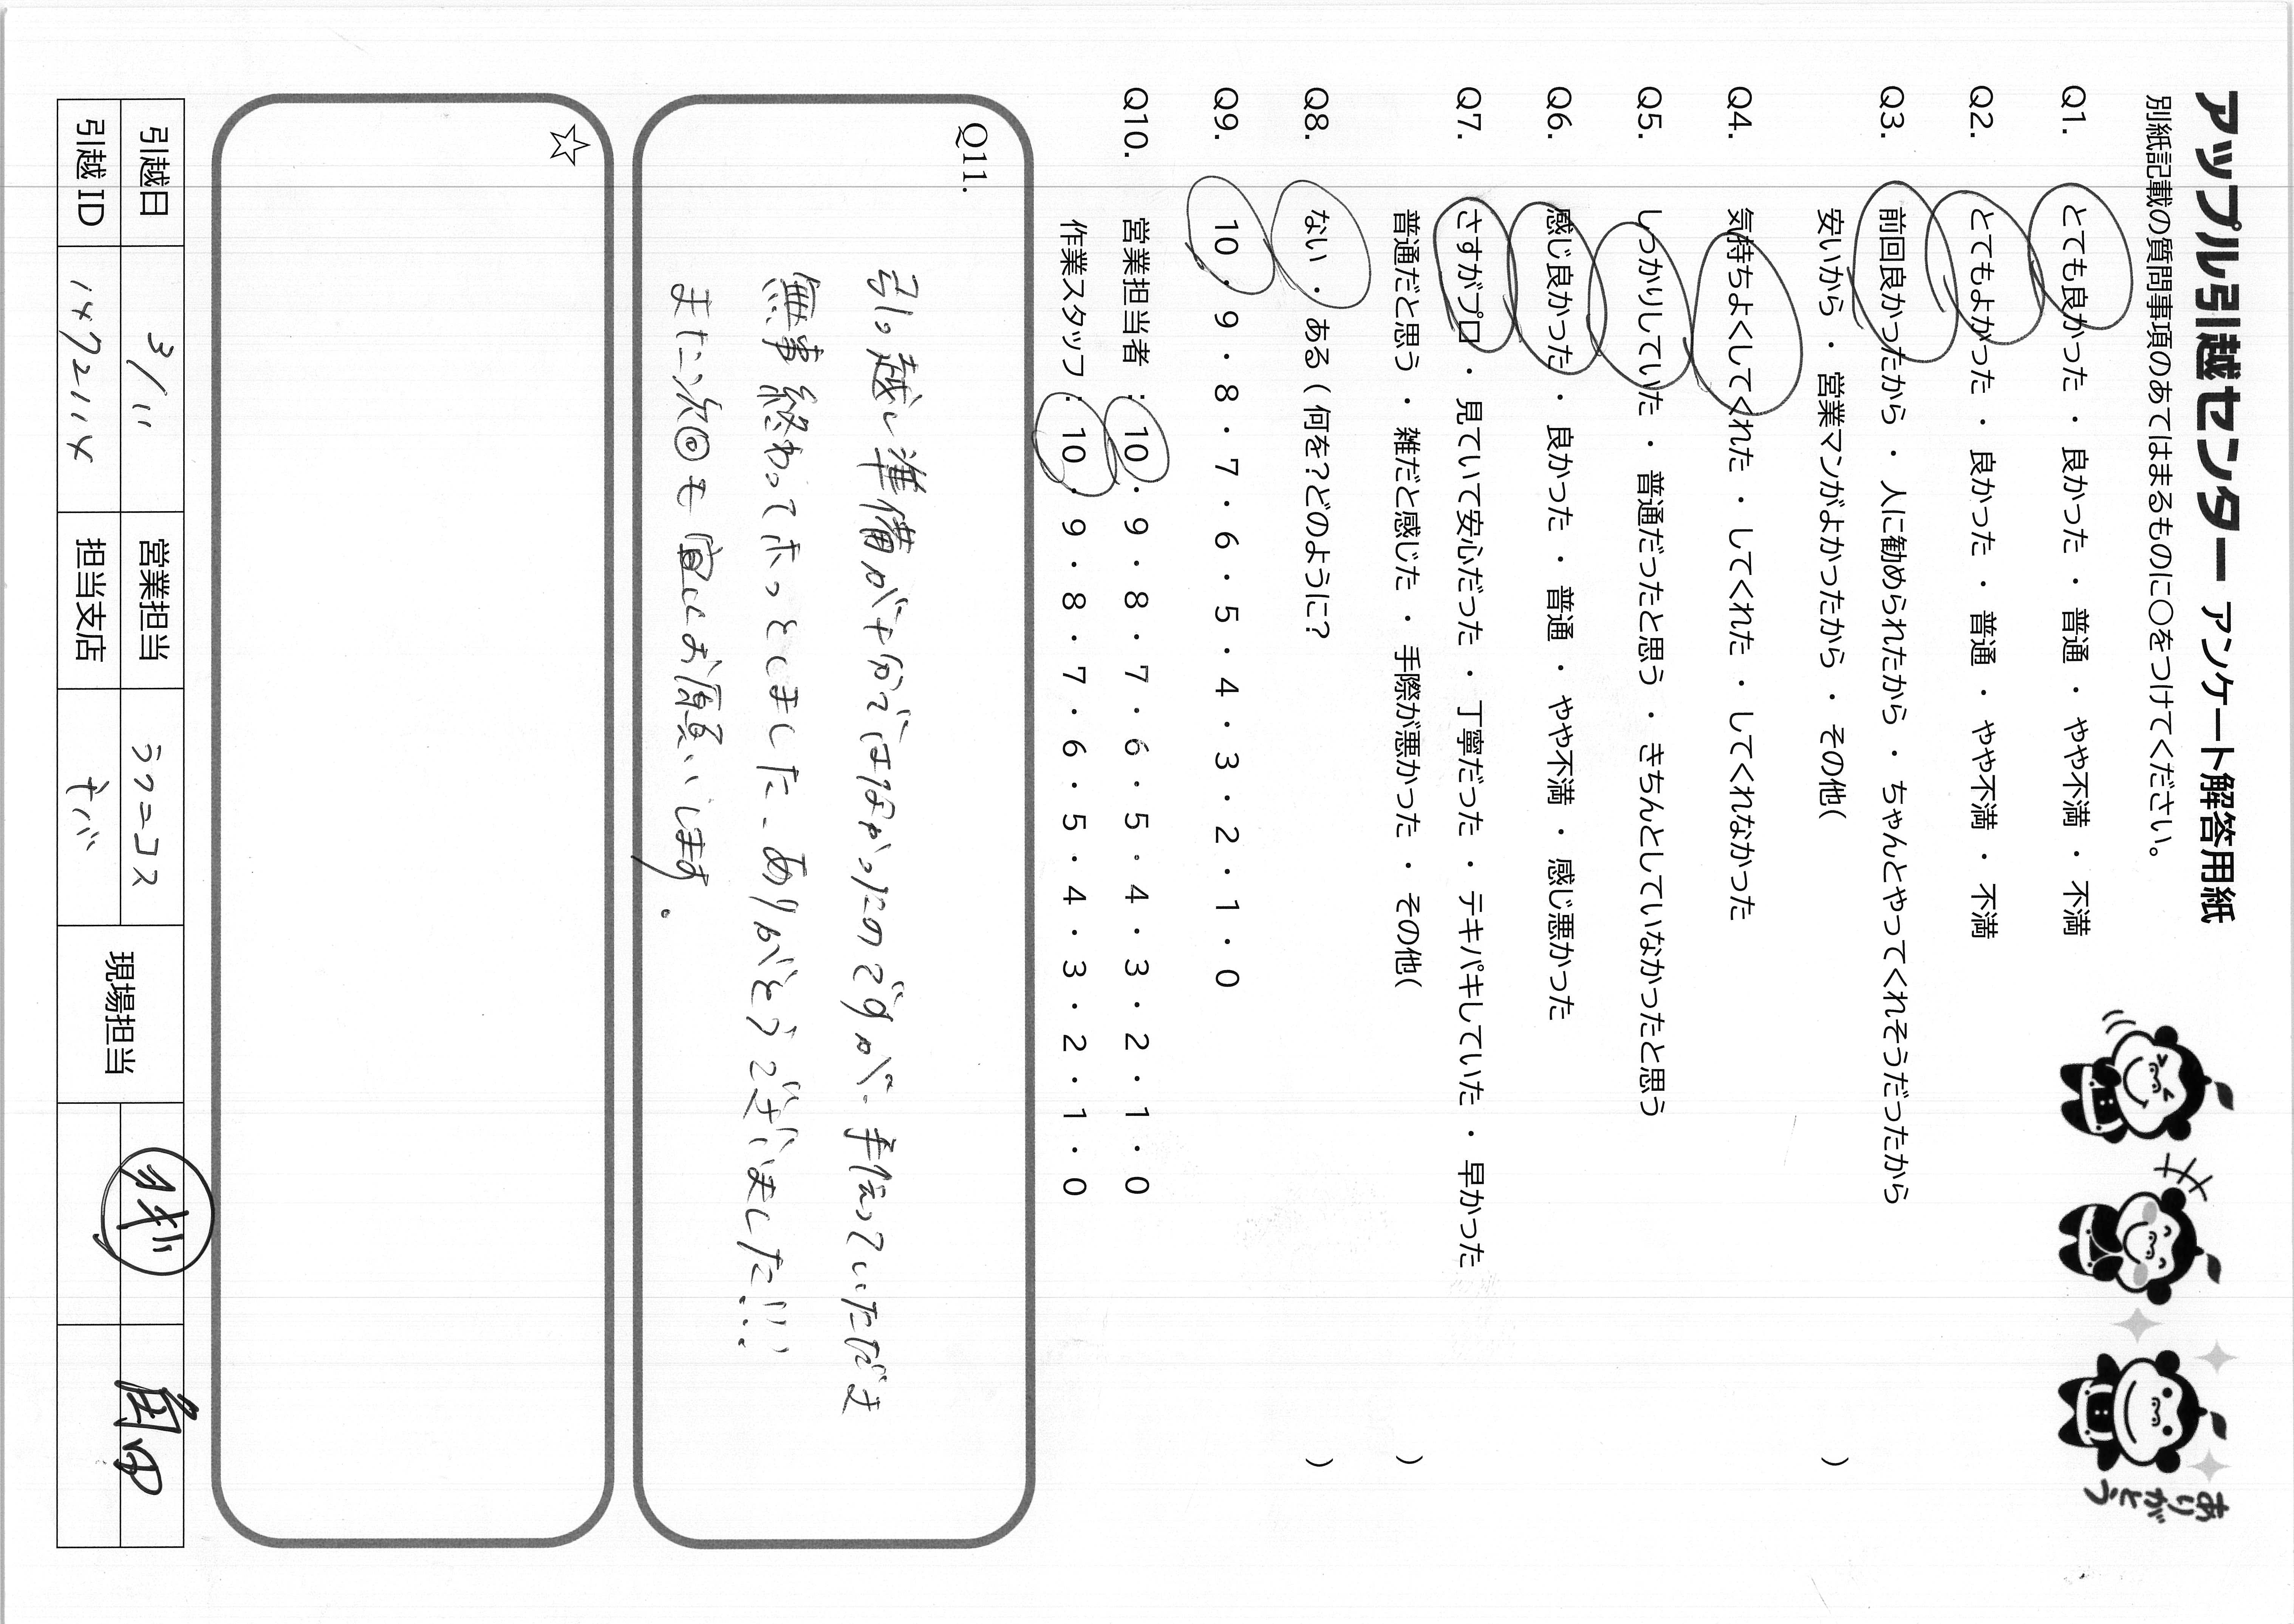 アップル引越センター アンケート解答用紙
別紙記載の質問事項のあてはまるものに○をつけてください。
Q1. とても良かった ・ 良かった ・ 普通 ・ やや不満 ・ 不満
Q2. とてもよかった ・ 良かった ・ 普通 ・ やや不満 ・ 不満
Q3. 前回良かったから ・ 人に勧められたから ・ ちゃんとやってくれそうだったから
安いから ・ 営業マンがよかったから ・ その他( )
Q4. 気持ちよくしてくれた ・ してくれた ・ してくれなかった
Q5. しっかりしていた ・ 普通だったと思う ・ きちんとしていなかったと思う
Q6. 感じ良かった ・ 良かった ・ 普通 ・ やや不満 ・ 感じ悪かった
Q7. さすがプロ ・ 見ていて安心だった ・ 丁寧だった ・ テキパキしていた ・ 早かった
普通だと思う ・ 雑だと感じた ・ 手際が悪かった ・ その他( )
Q8. ない ・ ある ( 何を？どのように？ )
Q9. 10 ・ 9 ・ 8 ・ 7 ・ 6 ・ 5 ・ 4 ・ 3 ・ 2 ・ 1 ・ 0
Q10. 営業担当者 : 10 ・ 9 ・ 8 ・ 7 ・ 6 ・ 5 ・ 4 ・ 3 ・ 2 ・ 1 ・ 0
作業スタッフ : 10 ・ 9 ・ 8 ・ 7 ・ 6 ・ 5 ・ 4 ・ 3 ・ 2 ・ 1 ・ 0
Q11.
引っ越し準備が十分ではなかったのですが、手伝っていただき
無事終わってホッとしました、ありがとうございました!!!
また次回も宜しくお願いします。
☆
引越日 3/11 営業担当 ラクニコス 現場担当
引越 ID 1472114 担当支店 チバ
角田
ありがとう